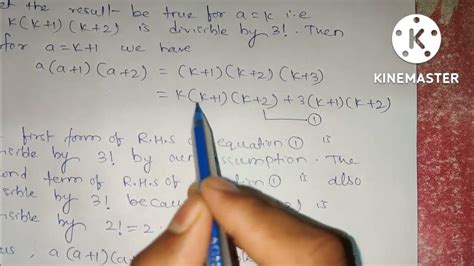 the result be true for a=k i.e
k(k+1)(k+2) is divisible by 3! . Then
for a=k+1 we have
a(a+1)(a+2) = (k+1)(k+2)(k+3)
= k(k+1)(k+2) + 3(k+1)(k+2)
①
first form of R.H.S of equation ① is
by 3! by our assumption. The
term of R.H.S of ① is also
by 3! is
by 2! = 2
a(a+1)(a
K
KINEMASTER